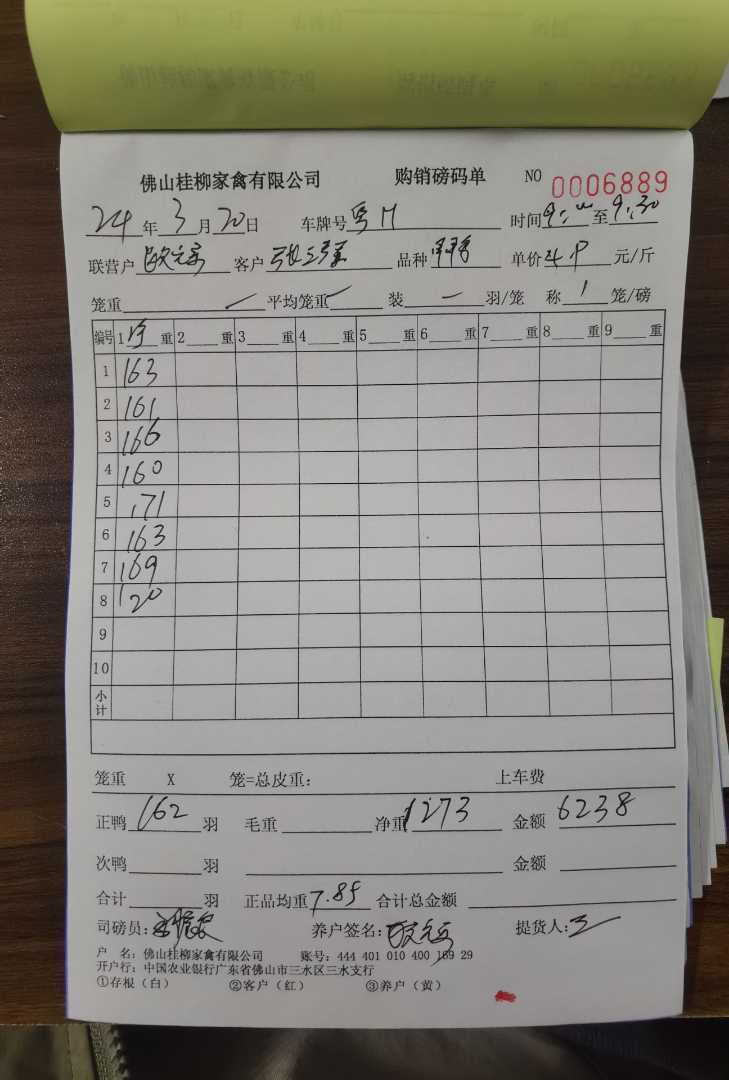 佛山桂柳家禽有限公司 购销磅码单 NO 0006889
24年3月20日 车牌号粤H 时间9: 至9:30
联营户 客户 品种 单价4.9元/斤
笼重 平均笼重 装一羽/笼 称1笼/磅
编号 1净重 2重 3重 4重 5重 6重 7重 8重 9重
1 163
2 161
3 166
4 160
5 171
6 163
7 169
8 120
9
10
小计
笼重 X 笼=总皮重: 上车费
正鸭162羽 毛重 净重1273 金额6238
次鸭 羽 金额
合计 羽 正品均重7.85 合计总金额
司磅员: 养户签名: 提货人:
户 名: 佛山桂柳家禽有限公司 账号: 444 401 010 400 169 29
开户行: 中国农业银行广东省佛山市三水区三水支行
①存根(白) ②客户(红) ③养户(黄)